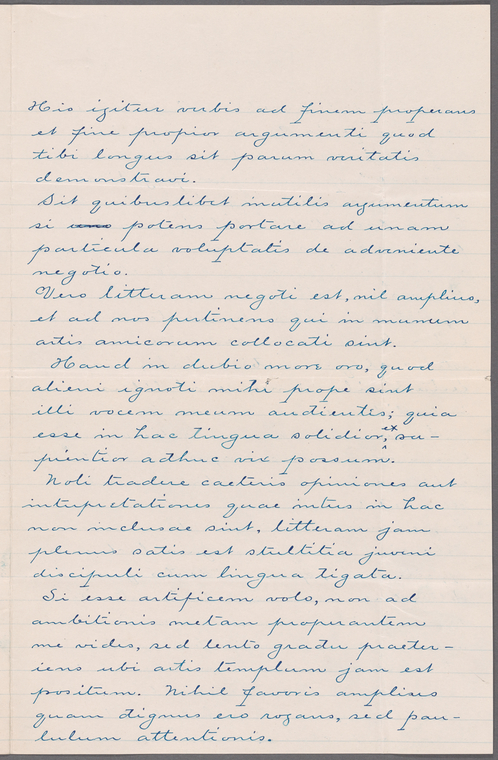 His igitur verbis ad finem properans
et fine propior argumenti quod
tibi longus sit parum veritatis
demonstravi.
Sit quibuslibet inutilis argumentum
si potens portare ad unam
particula voluptatis de adveniente
negotio.
Vero litteram negoti est, nil amplius,
et ad nos pertinens qui in manum
artis amicorum collocati sint.
Haud in dubio more oro, quod
alieni ignoti mihi prope sint
illi vocem meum audientis; quia
esse in hac lingua solidior, et sa-
pientior adhuc vix possum.
Noli tradere caeteris opiniones aut
intrepretationes quae intus in hac
non inclusae sint, litteram jam
plenus satis est stultitia juveni
discipuli cum lingua ligata.
Si esse artificem volo, non ad
ambitionis metam properantem
me vides, sed lento gradu praeter-
iens ubi artis templum jam est
positum. Nihil favoris amplius
quam dignus ero rogans, sed pau-
lulum attentionis.